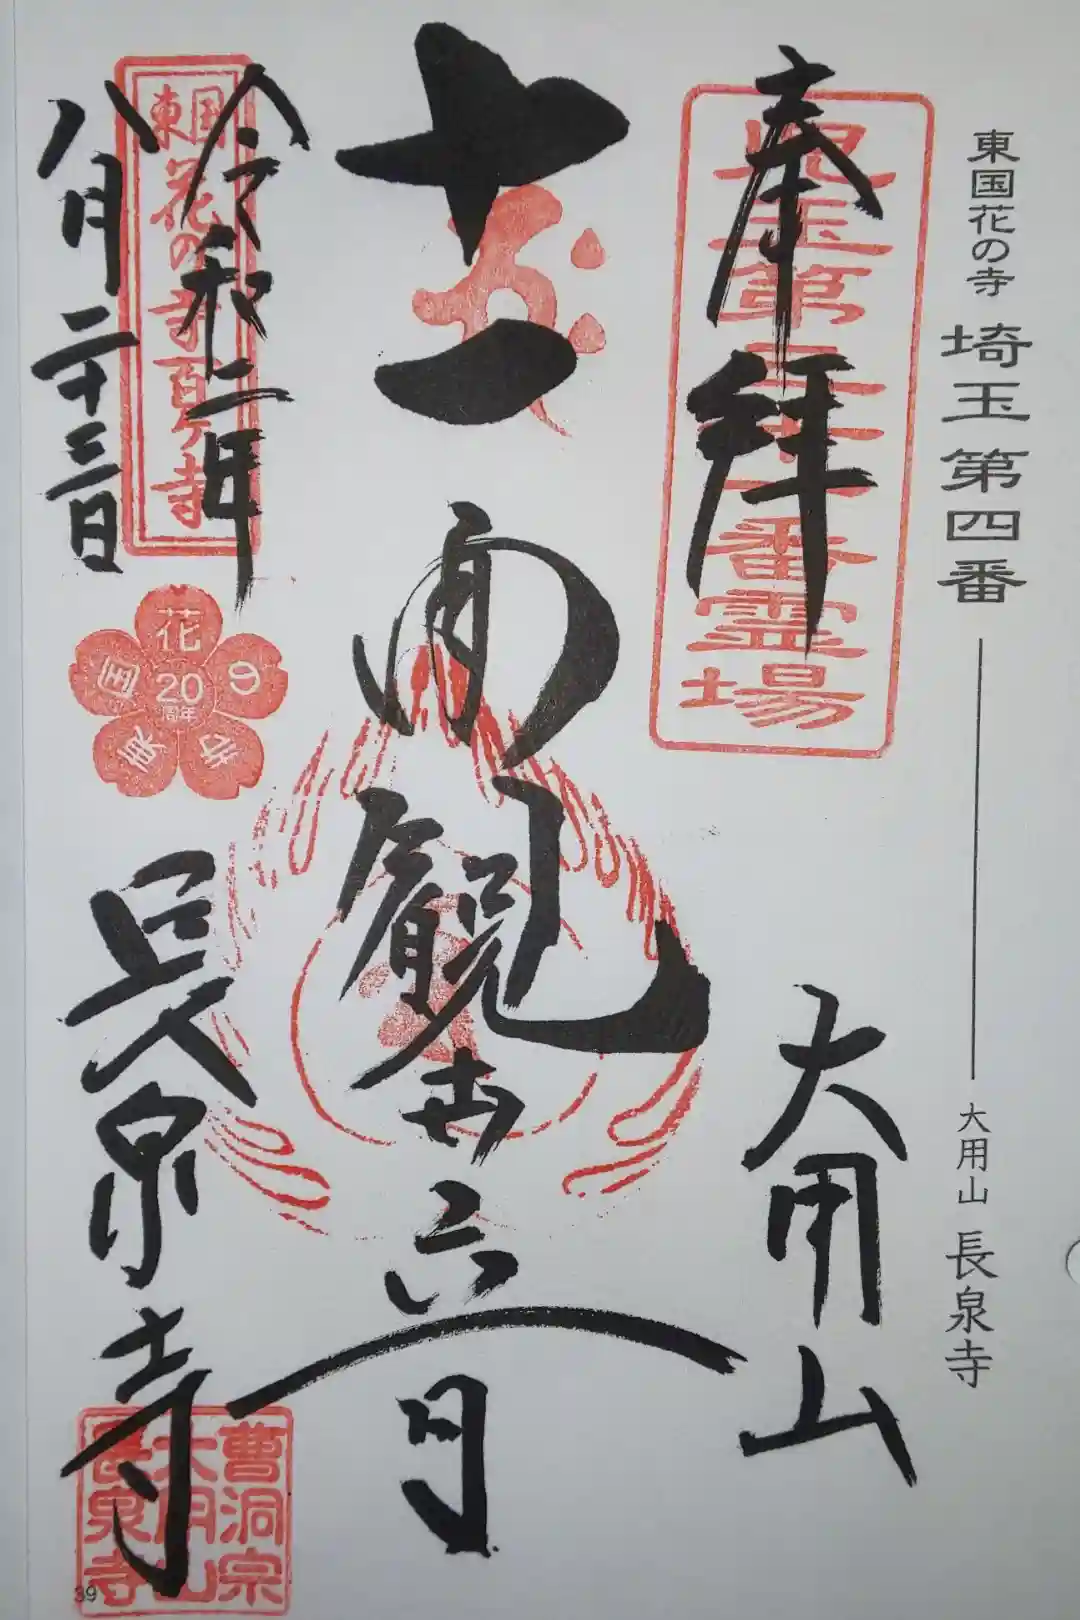 東国花の寺 埼玉第四番 大用山 長泉寺
奉拝
児玉第三十一番霊場
大用山
十一面観世音
令和二年
八月二十三日
東国花の寺百ケ寺
花の寺東国
20
周年
長泉寺
曹洞宗
大用山
長泉寺
39